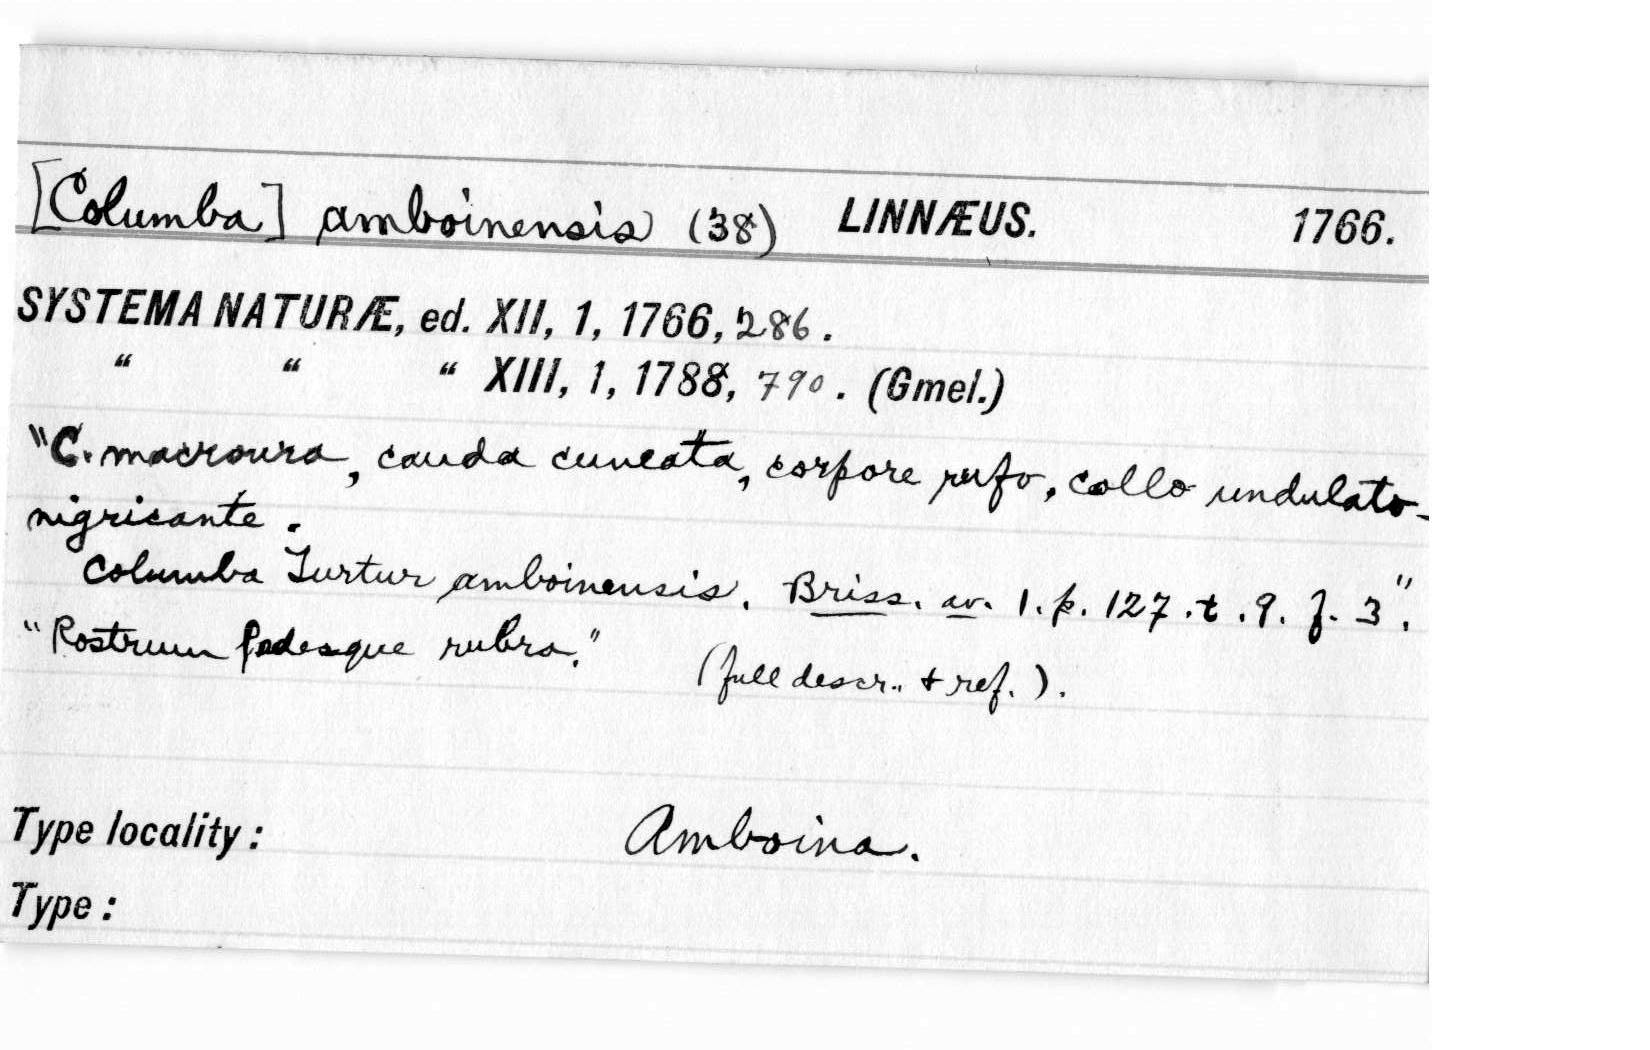 [Columba] amboinensis (38) LINNÆUS. 1766.
SYSTEMA NATURÆ, ed. XII, 1, 1766, 286.
“ “ “ XIII, 1, 1788, 790. (Gmel.)
"C. macroura, cauda cuneata, corpore rufo, collo undulato-
nigricante.
Columba Turtur amboinensis. Briss. av. 1. p. 127. t. 9. f. 3".
"Rostrum pedesque rubra."
(full descr. & ref.).
Type locality: Amboina.
Type: